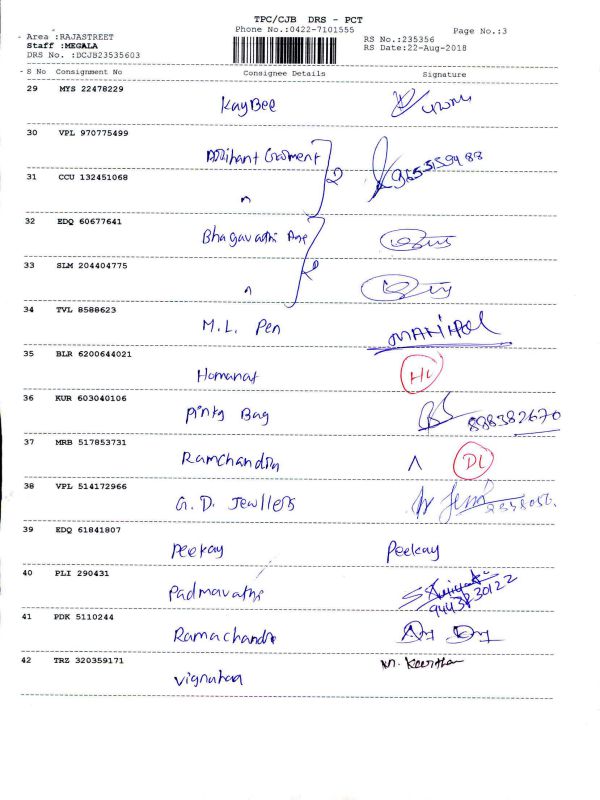 TPC/CJB DRS - PCT
Phone No.:0422-7101555 Page No.:3
Area :RAJASTREET RS No.:235356
Staff :MEGALA RS Date:22-Aug-2018
DRS No. :DCJB23535603
S No Consignment No Consignee Details Signature
29 MYS 22478229
KayBee
30 VPL 970775499
Arihant Garment
9655159488
31 CCU 132451068
"
32 EDQ 60677641
Bhagavathi
33 SLM 204404775
"
34 TVL 8588623
M.L. Pen
35 BLR 6200644021
Homanat HL
36 KUR 603040106
Pinky Bag
898382670
37 MRB 517853731
Ramchandra DL
38 VPL 514172966
G.D. Jewllers
39 EDQ 61841807
Peekay Peekay
40 PLI 290431
Padmavathi
9443230122
41 PDK 5110244
Ramachandra
42 TRZ 320359171